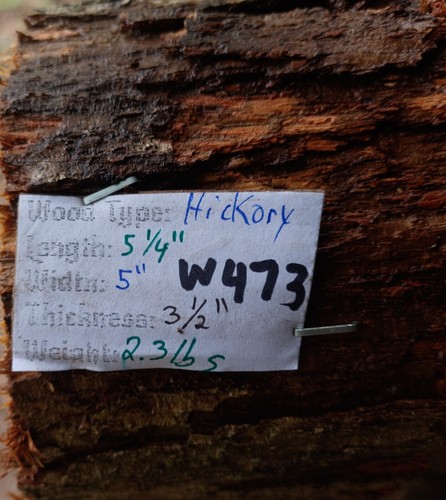 Wood Type: Hickory
Length: 5 1/4"
Width: 5" W473
Thickness: 3 1/2"
Weight: 2.3 lbs